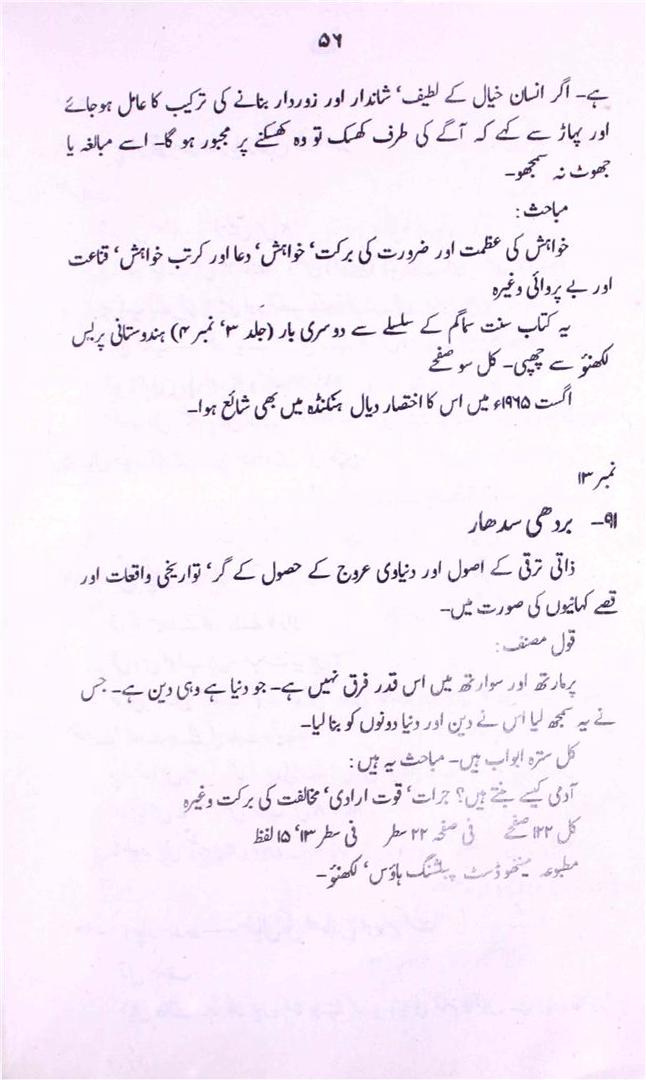 ۵۶
ہے۔ اگر انسان خیال کے لطیف‘ شاندار اور زوردار بنانے کی ترکیب کا عامل ہو جائے
اور پہاڑ سے کہے کہ آگے کی طرف کھسک تو وہ کھسکنے پر مجبور ہو گا۔ اسے مبالغہ یا
جھوٹ نہ سمجھو۔
مباحث :
خواہش کی عظمت اور ضرورت کی برکت‘ خواہش‘ دعا اور کرتب خواہش‘ قناعت
اور بے پروائی وغیرہ
یہ کتاب سنت سماگم کے سلسلے سے دوسری بار (جلد ۳‘ نمبر ۴) ہندوستانی پریس
لکھنؤ سے چھپی۔ کل سو صفحے
اگست ۱۹۶۵ء میں اس کا اختصار دیال ہنمکنڈہ میں بھی شائع ہوا۔
نمبر ۱۳
۹۱۔ بردھی سدھار
ذاتی ترقی کے اصول اور دنیاوی عروج کے حصول کے گر‘ تواریخی واقعات اور
قصے کہانیوں کی صورت میں۔
قول مصنف :
پرمارتھ اور سوارتھ میں اس قدر فرق نہیں ہے۔ جو دنیا ہے وہی دین ہے۔ جس
نے یہ سمجھ لیا اس نے دین اور دنیا دونوں کو بنا لیا۔
کل سترہ ابواب ہیں۔ مباحث یہ ہیں :
آدمی کیسے بنتے ہیں؟ جرات‘ قوت ارادی‘ مخالفت کی برکت وغیرہ
کل ۱۲۲ صفحے فی صفحہ ۲۲ سطر فی سطر ۱۳‘ ۱۵ لفظ
مطبوعہ میتھوڈسٹ پبلشنگ ہاؤس‘ لکھنؤ۔